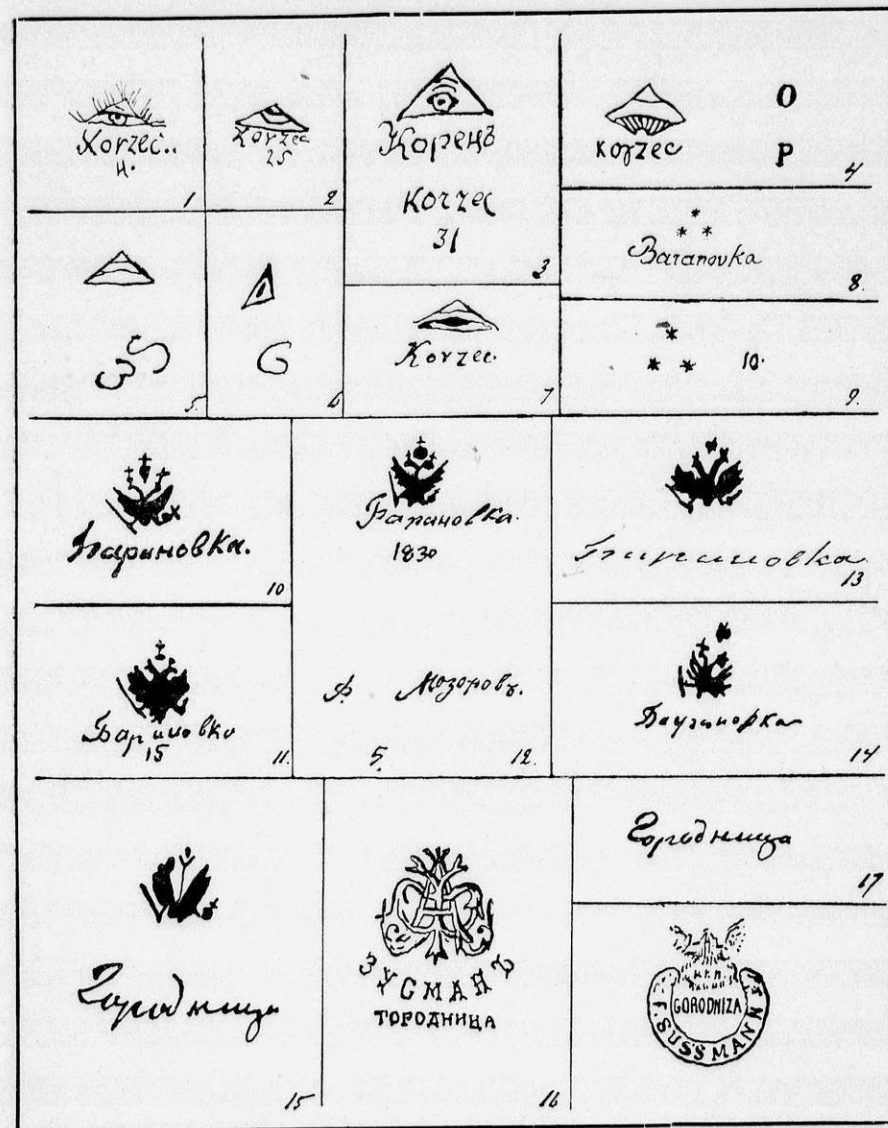 Korzec..
н.
1
Korzec
25
2
Кореиъ
Korzec
31
3
korzec
O
P
4
5.
G
6
Korzec.
7
Baranovka
8.
10.
9.
Барановка.
10
Барановка
15
11.
Барановка.
1830
Ф. Мозоровъ.
5.
12.
13
14
Городница
15
ЗУСМАНЪ
ТОРОДНИЦА
16
Городница
17
GORODNIZA
F. SUSSMANN